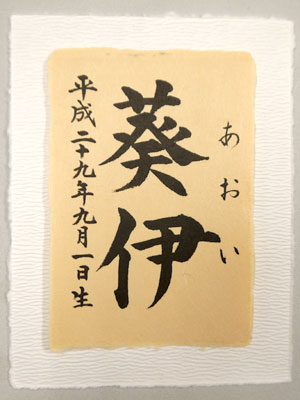 あおい
葵伊
平成二十九年九月一日生